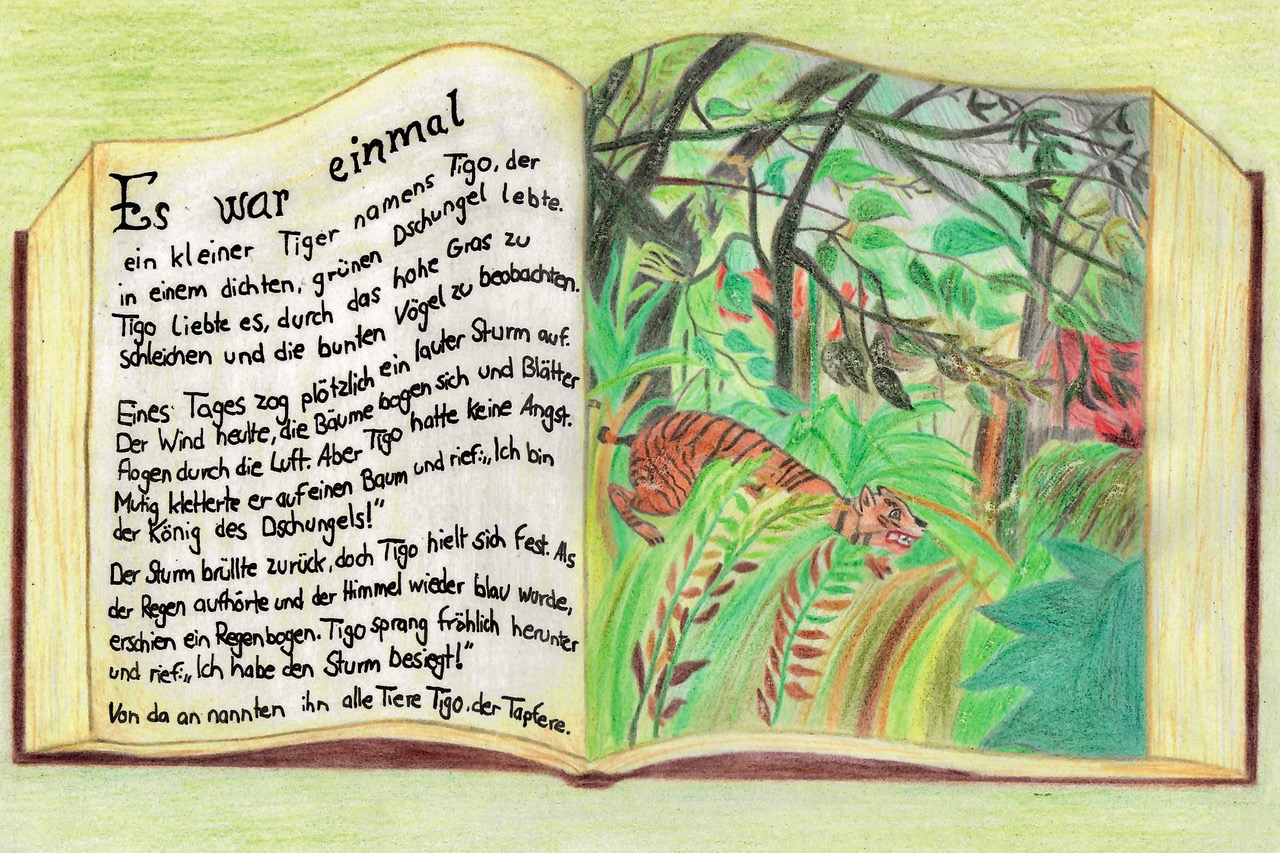 Es war einmal
ein kleiner Tiger namens Tigo, der
in einem dichten, grünen Dschungel lebte.
Tigo liebte es, durch das hohe Gras zu
schleichen und die bunten Vögel zu beobachten.
Eines Tages zog plötzlich ein lauter Sturm auf.
Der Wind heulte, die Bäume bogen sich und Blätter
flogen durch die Luft. Aber Tigo hatte keine Angst.
Mutig kletterte er auf einen Baum und rief: „Ich bin
der König des Dschungels!“
Der Sturm brüllte zurück, doch Tigo hielt sich fest. Als
der Regen aufhörte und der Himmel wieder blau wurde,
erschien ein Regenbogen. Tigo sprang fröhlich herunter
und rief: „Ich habe den Sturm besiegt!“
Von da an nannten ihn alle Tiere Tigo, der Tapfere.